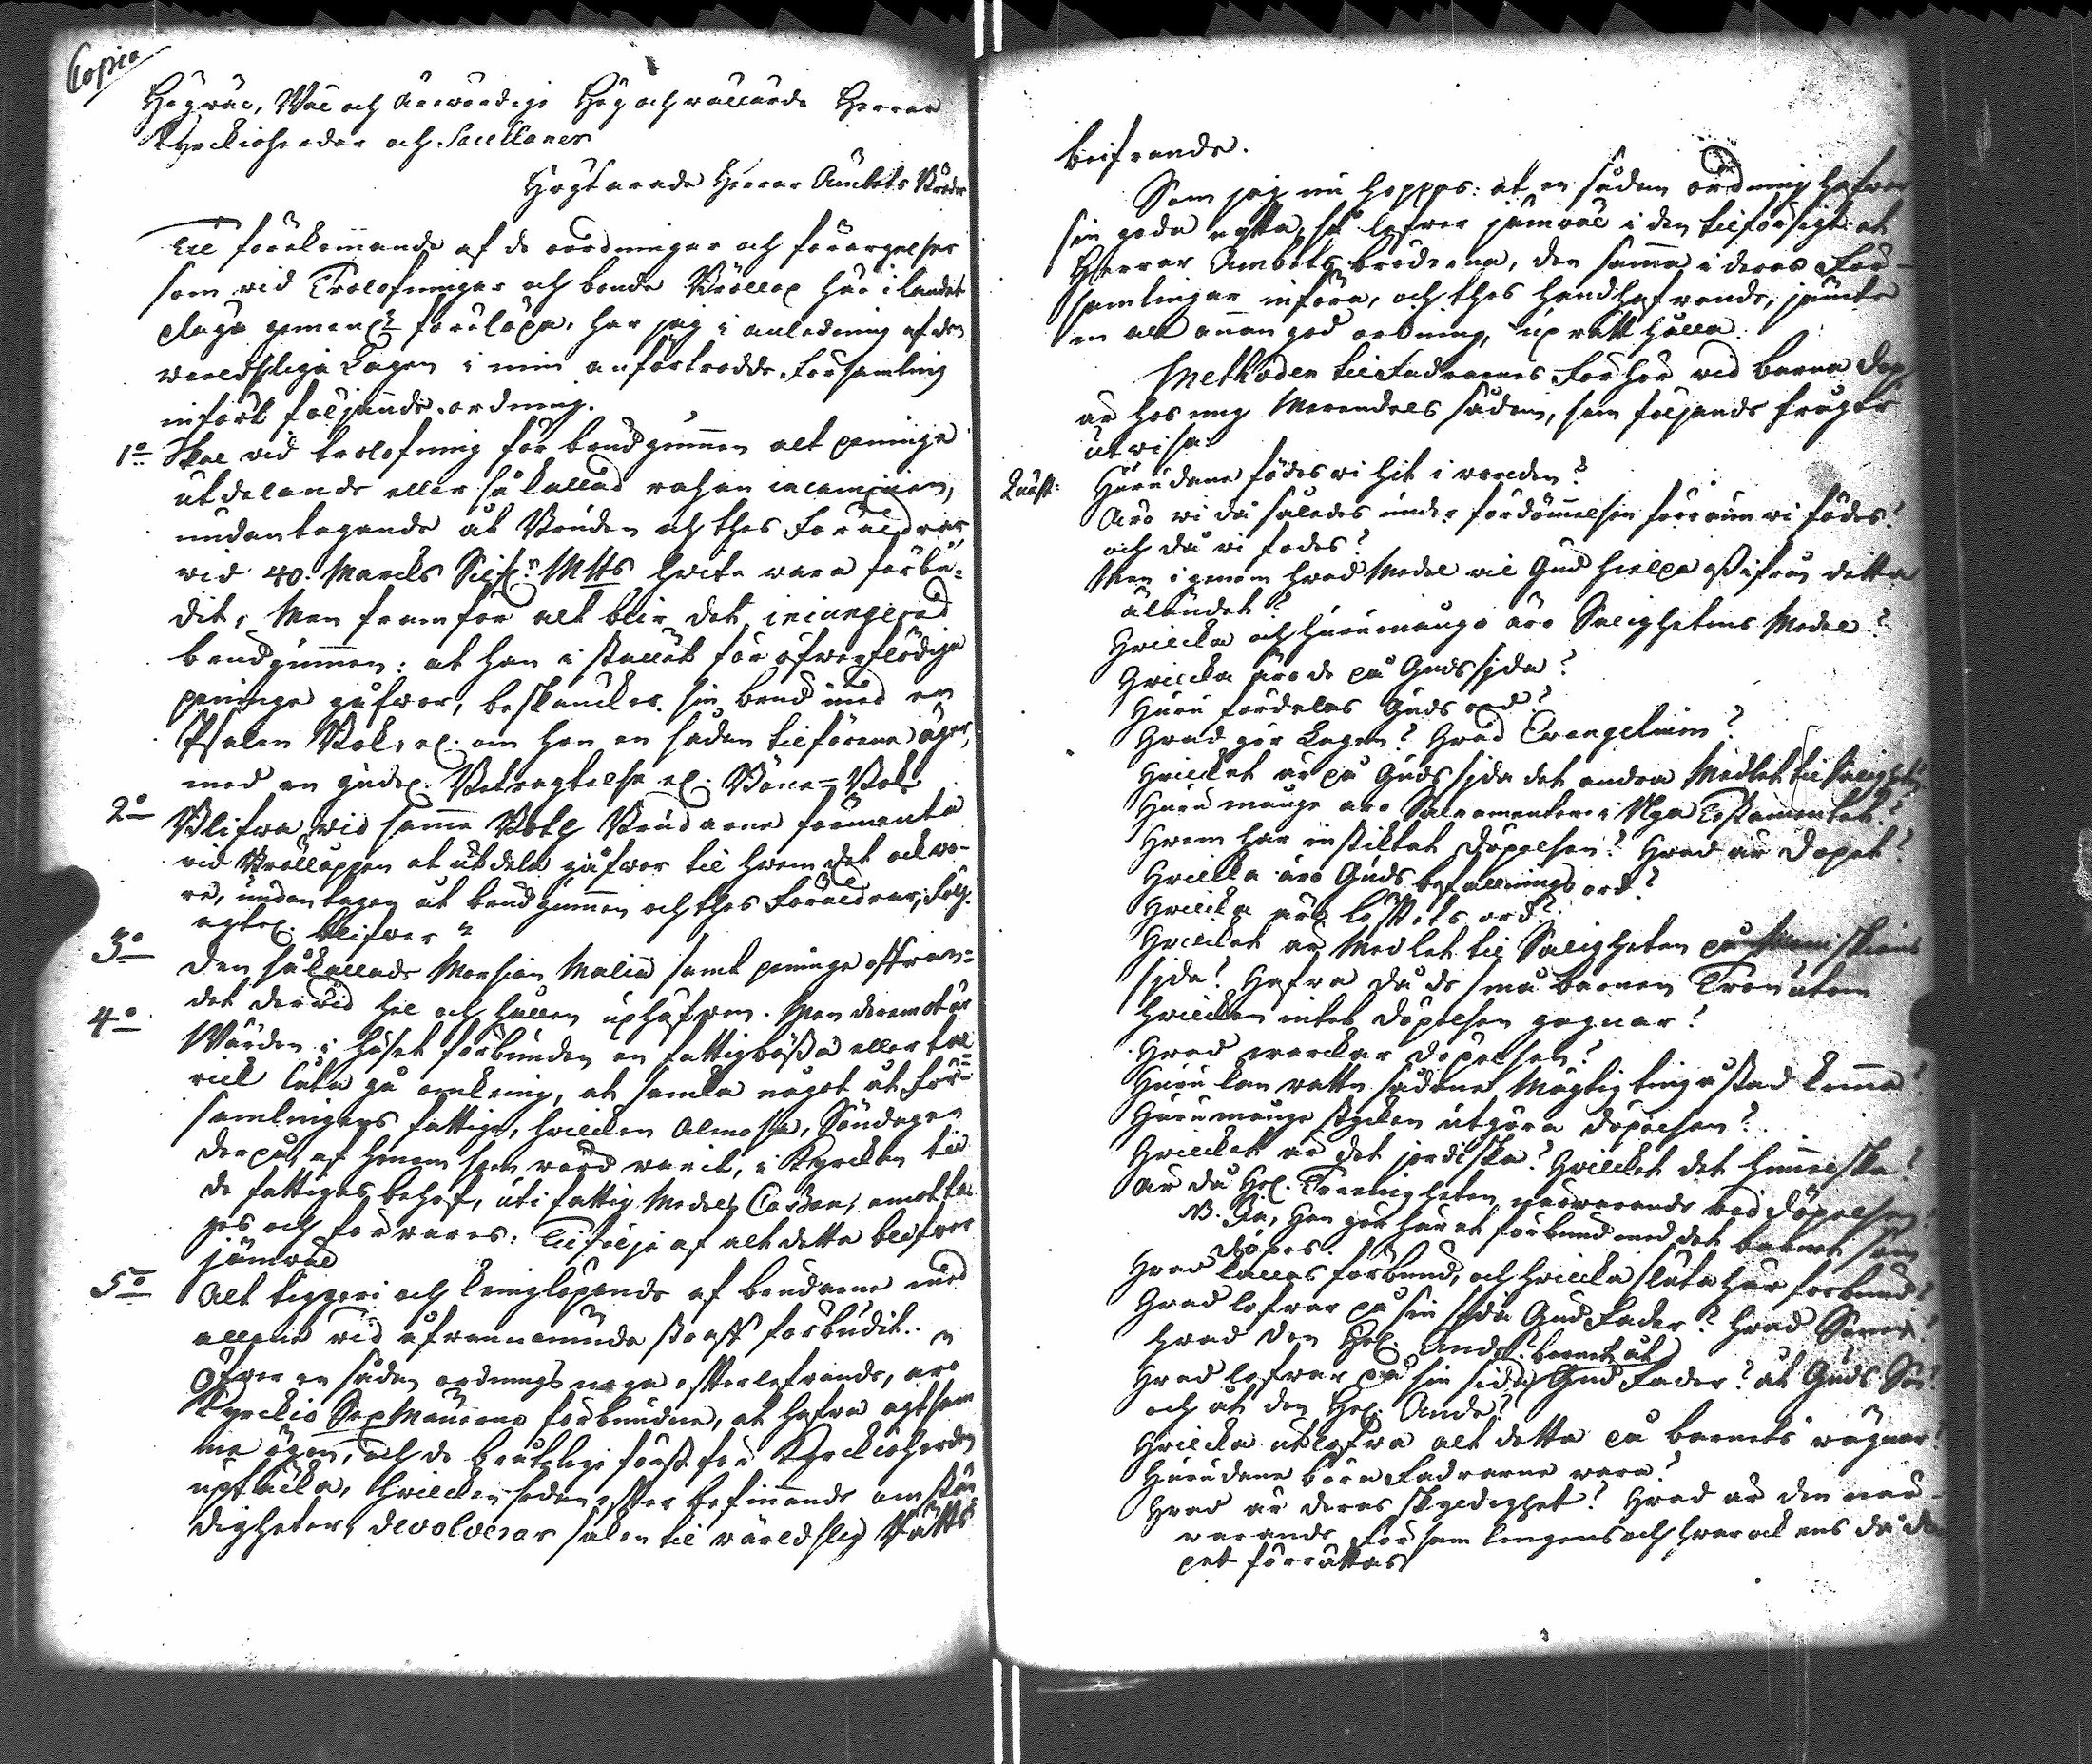 Copia
Högwäl, Wäl och ärewördige Hög och wällärde Herrar
Kyrckioherdar och Sacellaner
Högtärade Herrar Ämbets Bröder
Til förekommande af de oordningar och förargelser
som wid Trolofningar och bonde Bröllop här i landet
plaga gemenl. förelöpa, har jag i anledning af den
werldsliga Lagen i min anförtrodde Församling
infört följande ordning.
1o Skal wid trolofning för brudgummen alt peninge
utdelande eller så kallad
undantagande åt Bruden och thes Föräldrar,
wid 40. Marcks Silf:r Mtts wite wara förbu-
dit, Men framför alt blir det injungerad
brudgummen: at han i stället för öfwerflödiga
peninge gåfwor, beskäncker sin brud med en
Psalm Bok, el. om hon en sådan tilförene äger,
med en gudel. Betragtelse el. Böne-Bok
2o Blifwa wid samma Both Brudarne förmente
wid Brölloppen at utdela gåfwor til hwem det ock wo-
re, undantagen åt brudgummen och thes Föräldrar, Följ.
agtel. blifwer
3o den så kallade Morsion Malin samt peninge offran-
det derwid hel och hållen uphäfwen. Men deremot är
4o Wärden i huset förbunden en fattigbössa eller tal
rick låta gå omkring, at samla något åt För-
samlingens fattige, hwilcken Almosa, Söndagen
derpå, af honom som wärd warit, i Kyrckan til
de fattigas behof, uti fattig Medels Cassan, emotta
ges och förwares: Tilfölje af alt detta blifwer
jämwäl
5o Alt tiggeri och kringlöpande af brudarne med
allone wid ofwannämnde straff förbudit.
Öfwer en sådan ordnings noga efterlefwande, äro
Kyrckio Sex Männerne förbundne, at hafwa agtsam
ma ögon, och de brotzlige först för Kyrckioherden
uptäcka, hwilcken sedan efter befinnande omstän
digheter, devolverar saken til wärldslig Rätts
beifrande.
Som jag nu hoppas: at en sådan ordning hafwer
sin goda nytta, så lefwer jämwäl i den tilförsigt: at
Herrar Ämbets bröderna, den samma i deras För-
samlingar införa, och thes handhafwande, jämte
en alt annan god ordning, uprätt hålla.
Methoden til Faddrarnes Förhör wid barna dop
är hos mig Merendels sådan, som följande frågor
utwisa
Quæst: Hurudane födes wi hit i werlden?
Äro wi då således under fördömmelsen förr än wi födes?
och då wi födes?
Men igenom hwad Medel wil Gud hielpa oss ifrån detta
eländet?
Hwilcka och huru många äro Salighetens Medel?
Hwilcka äro de på Guds sida?
Huru fördelas Guds ord?
Hwad gör Lagen? Hwad Evangelium?
Hwilcket är på Guds sida det andra Medlet til Salighet?
Huru många äro Sacramenten i Nya Testamentet?
Hwem har instiktat döpelsen? Hwad är dopet?
Hwilcka äro Guds befallnings ord?
Hwilcka äro löftets ord?
Hwilcket är Medlet til Saligheten på Menniskians
sida? Hafwa då de små barnen Tron utom
hwilcken intet döpelsen gagnar?
Hwad wärckar döpelsen?
Huru kan watten sådane Mägtig ting åstad komma?
Huru många stycken utgöra döpelsen?
Hwilcket är det jordiska? Hwilcket det himmelska?
Är då Hel. Treenigheten närwarande wid döpelsen?
NB. Ja, Han gör här et förbund med det barnet som
döpes.
Hwad kallas förbund, och hwilcka sluta här förbund?
Hwad lofwar på sin sida Gud Fader? Hwad Sonen?
hwad den Hel. Ande?
Hwad lofwar på sin sida barnet åt Gud Fader? åt Guds Son?
och åt den Hel. Ande?
Hwilcka utlofwa alt detta på barnets wägnar?
Hurudane böra Faddrarne wara?
Hwad är deras skyldighet? Hwad är den när-
warande Församlingens och hwar ock ens då do
pet förrättas